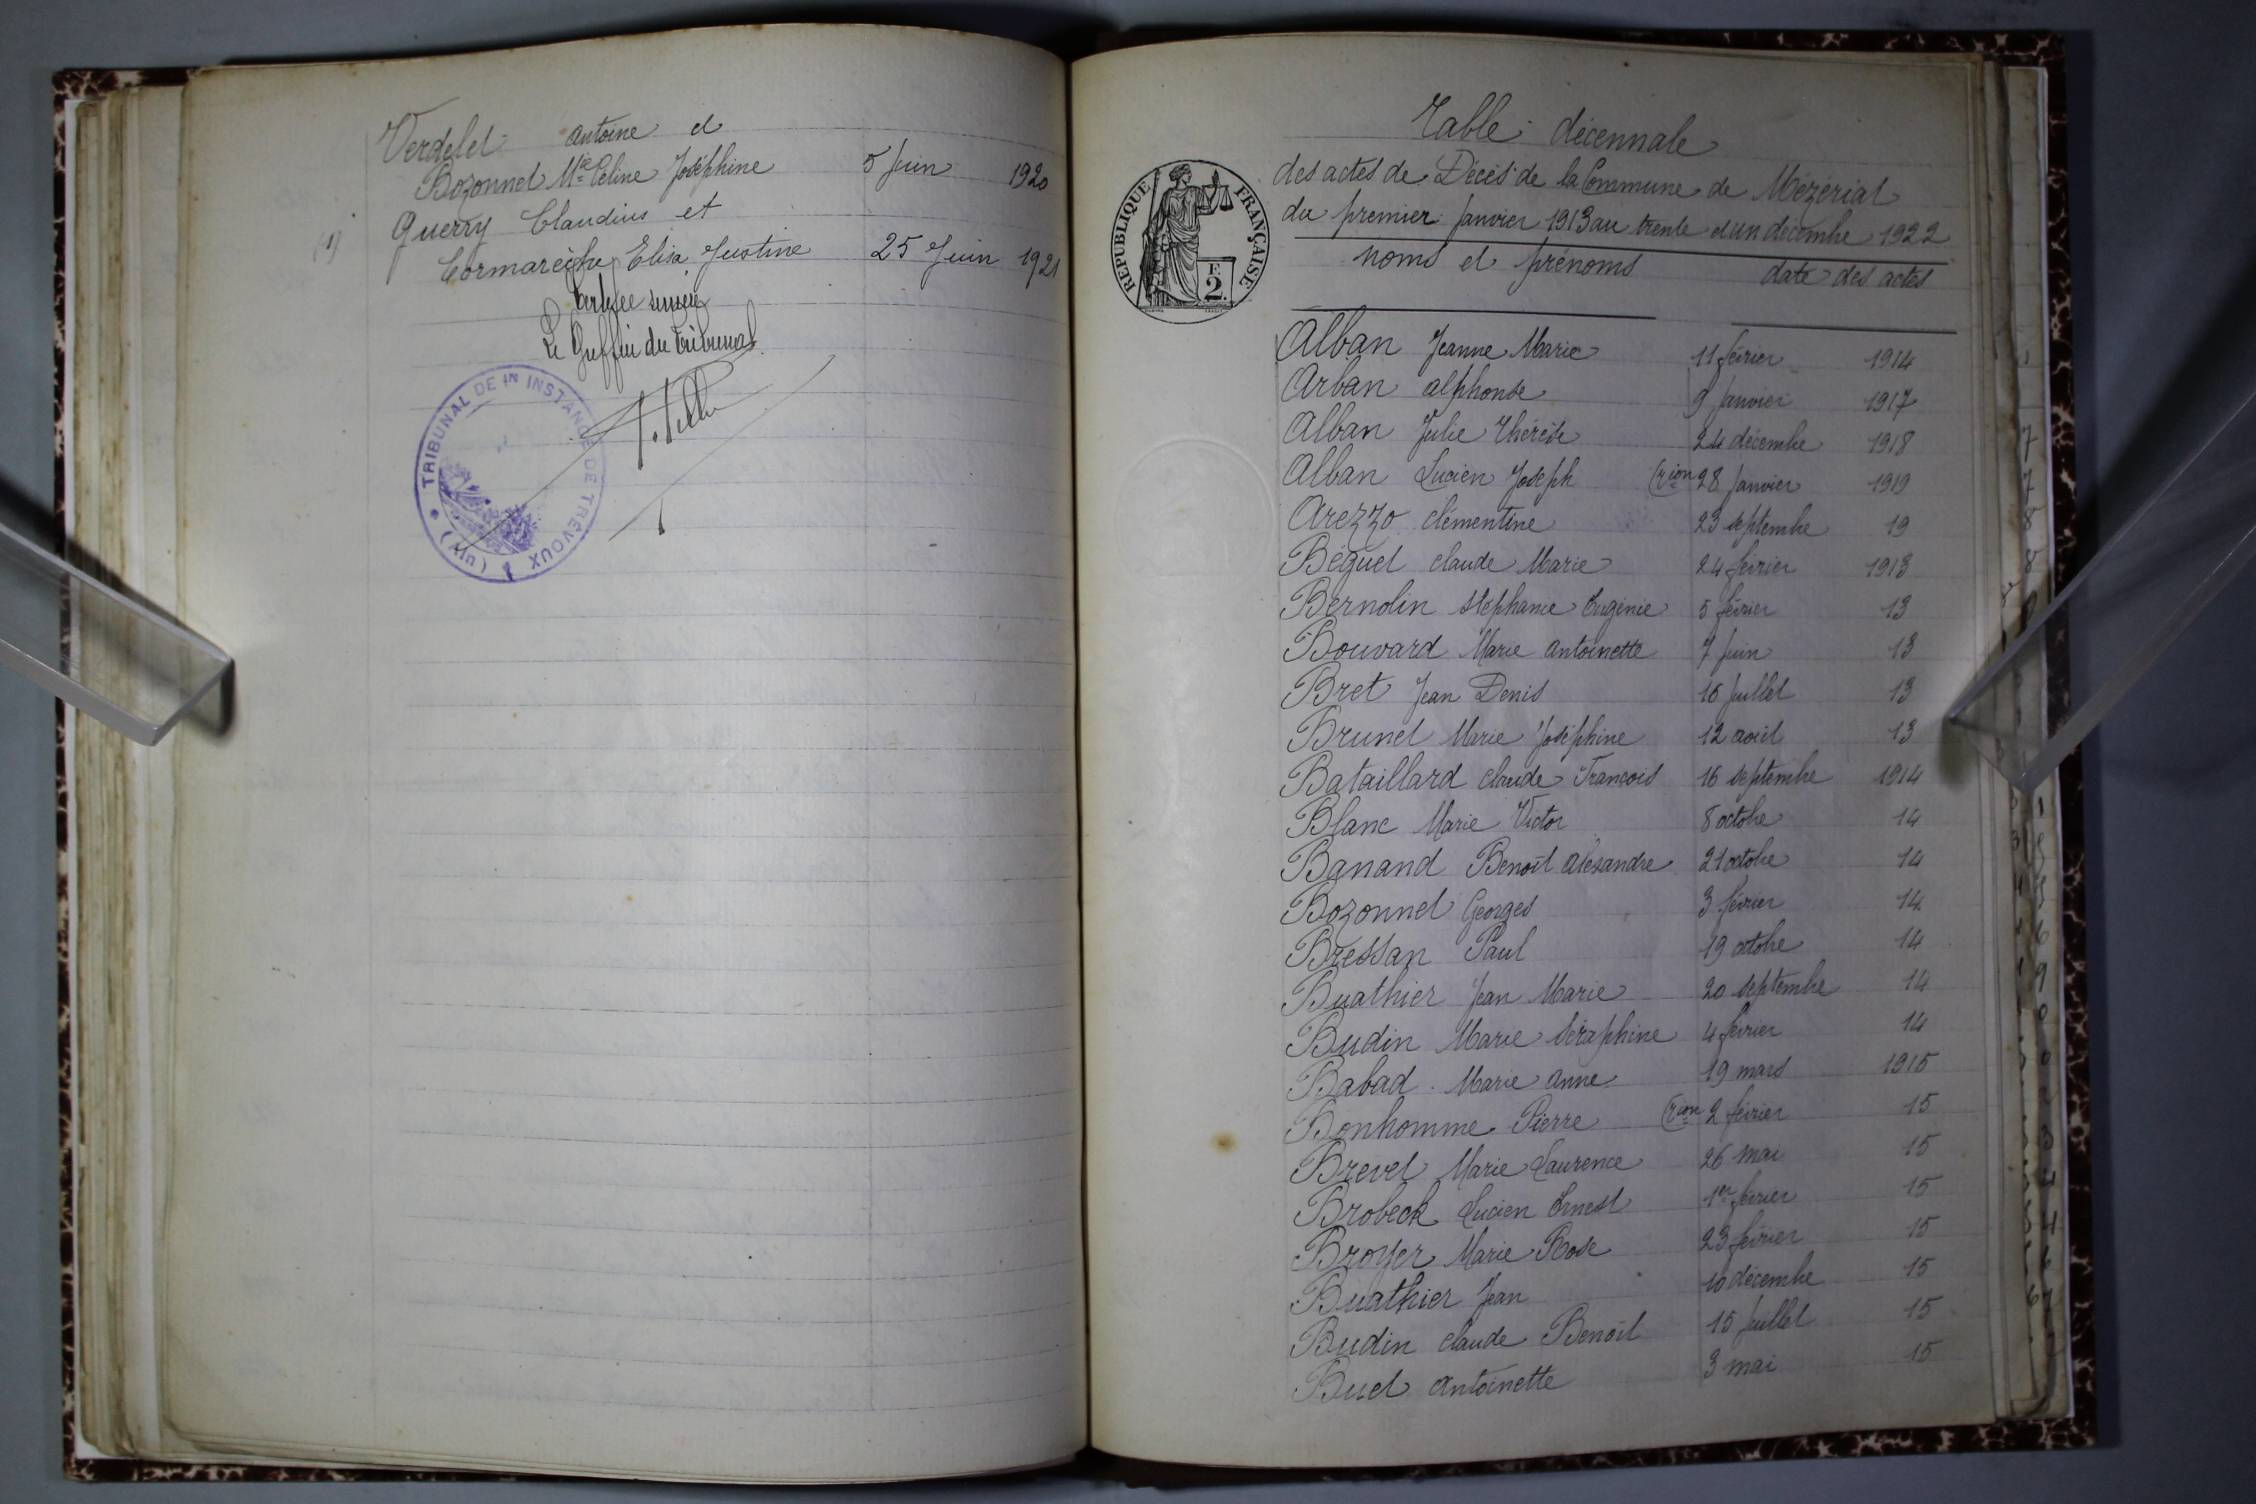 Verdelet Antoine et
Bozonnet Mie Céline Joséphine 5 Juin 1920
(1) Guerry Claudius et
Cormarèche Elisa Justine 25 Juin 1921
Le Greffier du Tribunal
TRIBUNAL DE 1re INSTANCE DE TRÉVOUX (Ain)
Table décennale
des actes de Décès de la Commune de Mézériat
du premier Janvier 1913 au trente et un décembre 1922
RÉPUBLIQUE FRANÇAISE
F. 2.
noms et prénoms date des actes
Alban Jeanne Marie 11 février 1914
Arban alphonse 9 Janvier 1917
Alban Julie Thérèse 24 décembre 1918
Alban Lucien Joseph (rion 28 Janvier 1919
Arezzo clémentine 23 septembre 19
Béguet claude Marie 24 février 1913
Bernolin stéphanie Eugénie 5 février 13
Bouvard Marie antoinette 7 Juin 13
Bret Jean Denis 16 Juillet 13
Brunet Marie Joséphine 12 août 13
Bataillard claude François 16 septembre 1914
Blanc Marie Victor 8 octobre 14
Banand Benoît alexandre 21 octobre 14
Bozonnet Georges 3 février 14
Bressan Paul 19 octobre 14
Buathier Jean Marie 20 septembre 14
Budin Marie séraphine 4 février 14
Babad Marie anne 19 mars 1915
Bonhomme Pierre (rion 2 février 15
Brevet Marie Laurence 26 mai 15
Brobeck Lucien Ernest 1er février 15
Broyer Marie Rose 23 février 15
Buathier Jean 10 décembre 15
Budin claude Benoît 15 Juillet 15
Buet antoinette 3 mai 15